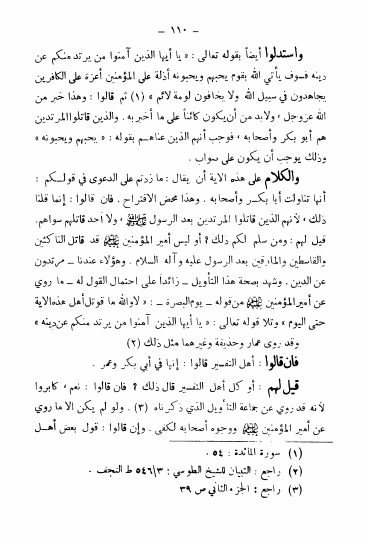 — ١١٠ —
واستدلوا أيضاً بقوله تعالى : « يا أيها الذين آمنوا من يرتد منكم عن
دينه فسوف يأتي الله بقوم يحبهم ويحبونه أذلة على المؤمنين أعزة على الكافرين
يجاهدون في سبيل الله ولا يخافون لومة لائم » (١) ثم قالوا : وهذا خبر من
الله عز وجل ، ولابد من أن يكون كائناً على ما أخبر به . والذي قاتلوا المرتدين
هم أبو بكر وأصحابه ، فوجب أنهم الذين عناهم بقوله : « يحبهم ويحبونه »
وذلك يوجب أن يكون على صواب .
والكلام على هذه الاية أن يقال : ما زدتم على الدعوى في قولكم :
أنها تناولت أبا بكر وأصحابه . وهذا محض الاقتراح . فان قالوا : إنما قلنا
ذلك ، لأنهم الذين قاتلوا المرتدين بعد الرسول ﷺ ، ولا احد قاتلهم سواهم.
قيل لهم : ومن سلم لكم ذلك ؟ أو ليس أمير المؤمنين عليه السلام قد قاتل الناكثين
والقاسطين والمارقين بعد الرسول عليه وآله السلام . وهؤلاء عندنا ـ مرتدون
عن الدين . وشهد بصحة هذا التأويل ـ زائدا على احتمال القول له ـ ما روي
عن أمير المؤمنين عليه السلام من قوله ـ يوم البصرة ـ : « لاوالله ما قوتل أهل هذه الاية
حتى اليوم » وتلا قوله تعالى : « يا أيها الذين آمنوا من يرتد منكم عن دينه »
وقد روى عمار وحذيفة وغيرهما مثل ذلك (٢)
فان قالوا : أهل التفسير قالوا : إنها في أبي بكر وعمر .
قيل لهم : أو كل أهل التفسير قال ذلك ؟ فان قالوا : نعم ، كابروا
لأنه قد روي عن جماعة التأويل الذي ذكرناه (٣) . ولو لم يكن الا ما روي
عن أمير المؤمنين عليه السلام ووجوه أصحابه لكفى . وإن قالوا : قول بعض أهل
(١) سورة المائدة : ٥٤ .
(٢) راجع : التبيان للشيخ الطوسي : ٥٤٦/٣ ط النجف .
(٣) راجع : الجزء الثاني ص ٣٩